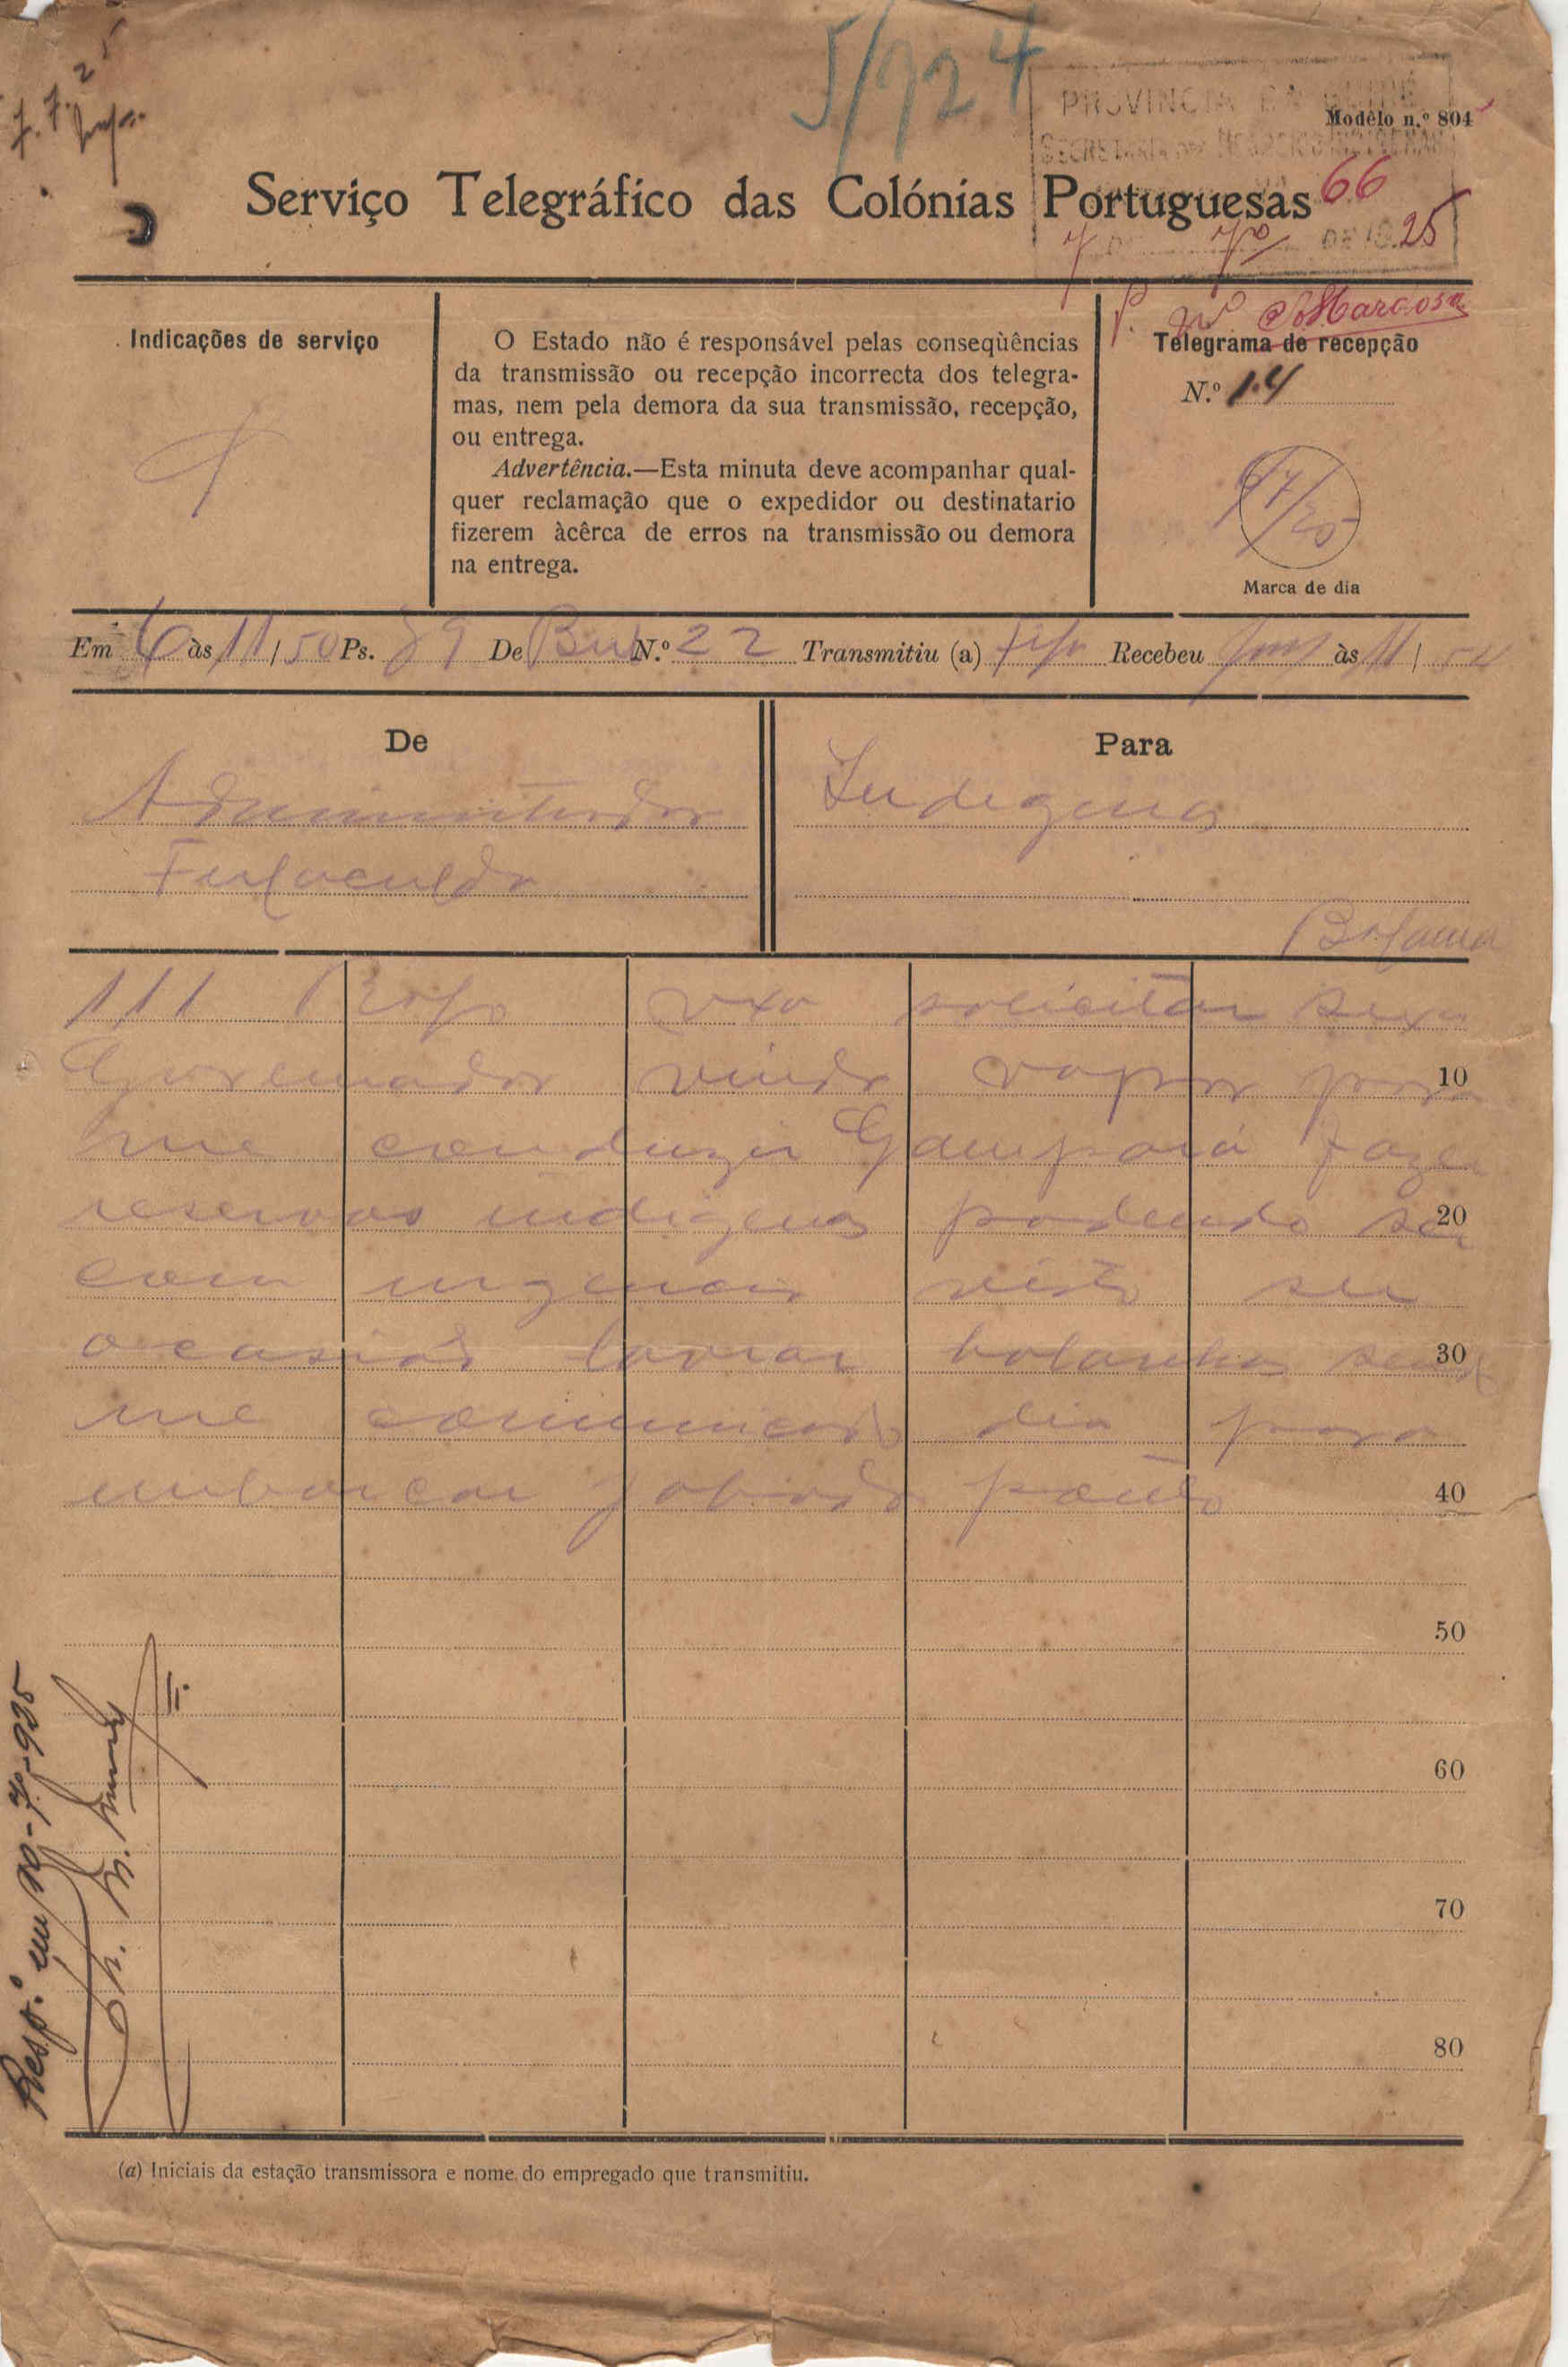 5/724
PROVINCIA DA GUINÉ
Modêlo n.º 804
SECRETARIA DOS NEGOCIOS INDIGENAS
66
Serviço Telegráfico das Colónias Portuguesas
7 DE 7º DE 1925
Indicações de serviço
O Estado não é responsável pelas conseqùências
da transmissão ou recepção incorrecta dos telegra-
mas, nem pela demora da sua transmissão, recepção,
ou entrega.
Advertência.—Esta minuta deve acompanhar qual-
quer reclamação que o expedidor ou destinatario
fizerem àcêrca de erros na transmissão ou demora
na entrega.
Telegrama de recepção
N.º 14
6/7/25
Marca de dia
Em 6 às 11/50 Ps. 39 De Bub N.º 22 Transmitiu (a) Recebeu às 11/54
De
Administrador
Para
Indigenas
Bolama
111 Rogo vxa solicitar sexa
Governador vinda vapor para
me conduzir Gampará fazer
reservas indigenas podendo ser
com urgencia visto ser
ocasião lavrar bolanhas
me comunicado dia para
embarcar ponto
10
20
30
40
50
60
70
80
Resp.º em 10-7º-925
(a) Iniciais da estação transmissora e nome do empregado que transmitiu.